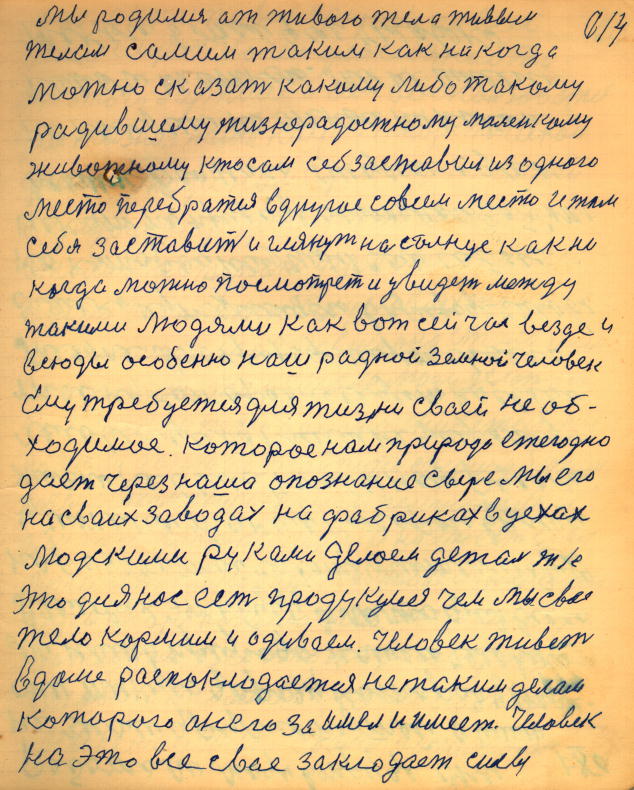 мы родимия ат живого тела живым
телам самим таким как никогда
можно сказат какому либо такому
радившему жизнерадостному маленкому
животному ктосам себ заставил из одного
место перебратся в другое совсем место и там
себя заставит и глянут на солнце как ни
когда можно посмотрет и увидет между
такими людями как вот сейчас везде и
всюды особенно наш радной земной человек
Ему требуется для жизни сваей не об-
ходимое. которое нам природа ежегодно
дает через наша опознание свыре мы его
на сваих заводах на фабриках в цехах
людскими руками делаем детал
Это для нос ест продукция чем мы свае
тело кормим и одиваем. Человек живет
в доме распоклодается не таким делам
которого он его за имел и имеет. Человек
на это все свае заклодает силы